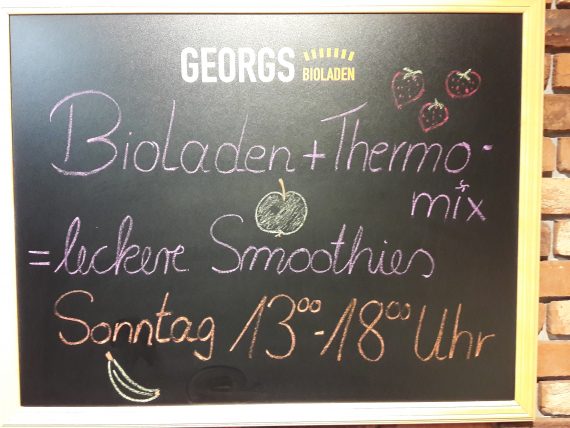 GEORGS BIOLADEN
Bioladen + Thermo-
mix
= leckere Smoothies
Sonntag 13⁰⁰-18⁰⁰ Uhr